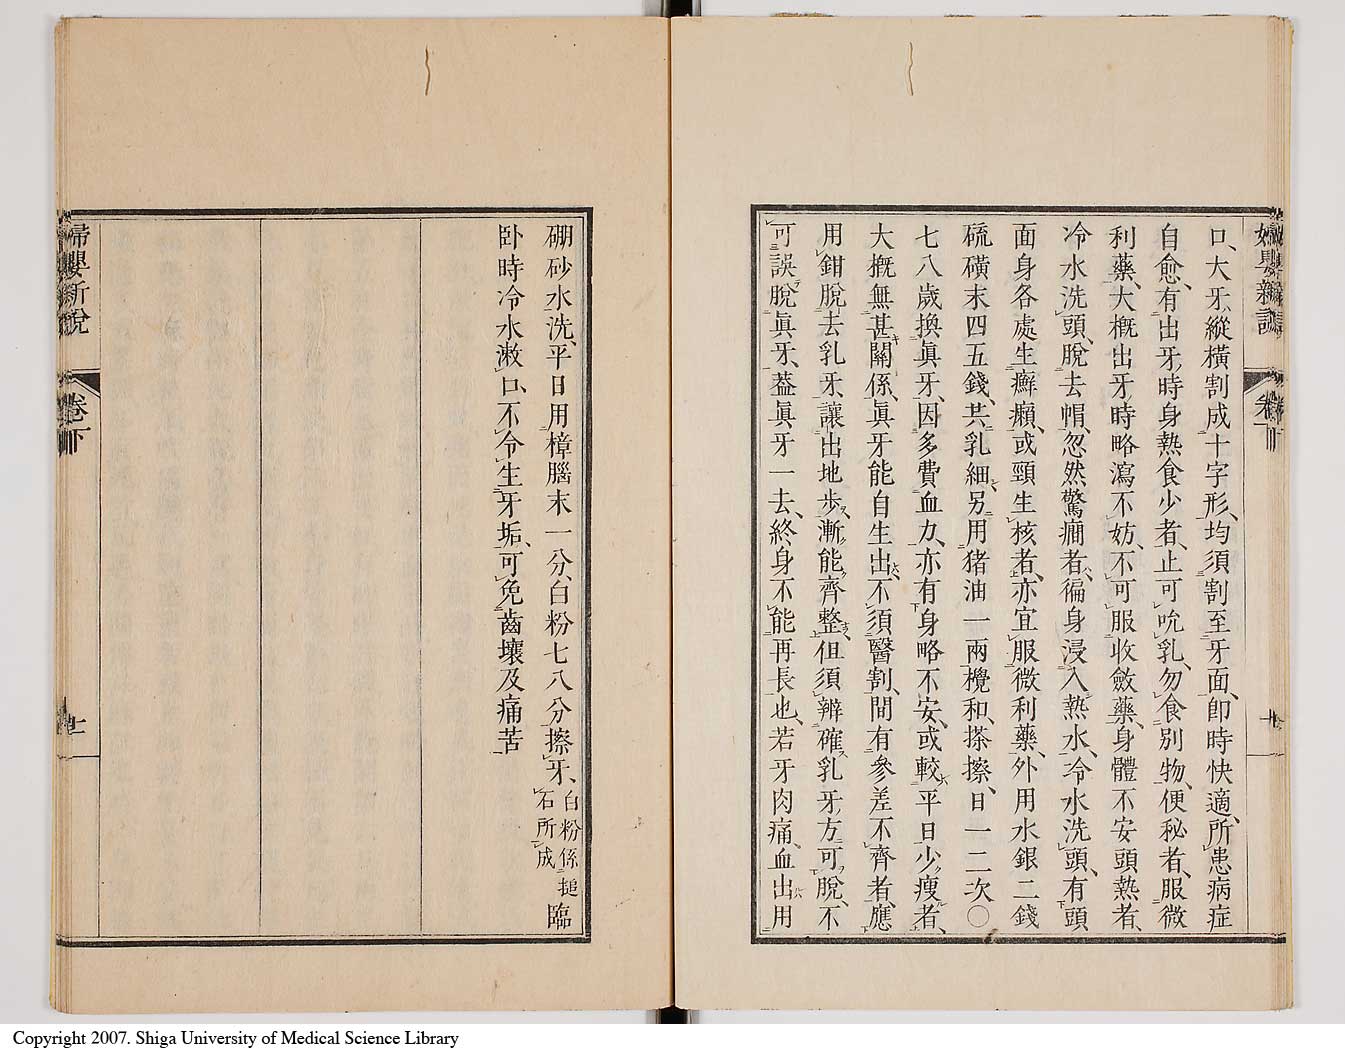 口、大牙、縱橫割成十字形、均須割至牙面、卽時快適、所患病症
自愈、有出牙時身熱食少者、止可吮乳、勿食別物、便秘者、服微
利藥、大槪出牙時略瀉不妨、不可服收斂藥、身體不安頭熱者、
冷水洗頭、脫去帽、忽然驚癎者、徧身浸入熱水、冷水洗頭、有頭
面身各處生癬癩、或頸生核者、亦宜服微利藥、外用水銀二錢
硫磺末四五錢、共乳細、另用猪油一兩攪和、搽擦、日一二次〇
七八歲換眞牙、因多費血力、亦有身略不安、或較平日少瘦者、
大槪無甚關係、眞牙能自生出、不須醫割、間有參差不齊者、應
用鉗脫去乳牙、讓出地步、漸能齊整、但須辨確乳牙、方可脫、不
可誤脫眞牙、蓋眞牙一去、終身不能再長也、若牙肉痛、血出用
硼砂水洗、平日用樟腦末一分、白粉七八分擦牙、白粉係搥石所成臨
卧時冷水漱口、不令生牙垢、可免齒壞及痛苦
婦嬰新說
卷下
Copyright 2007. Shiga University of Medical Science Library